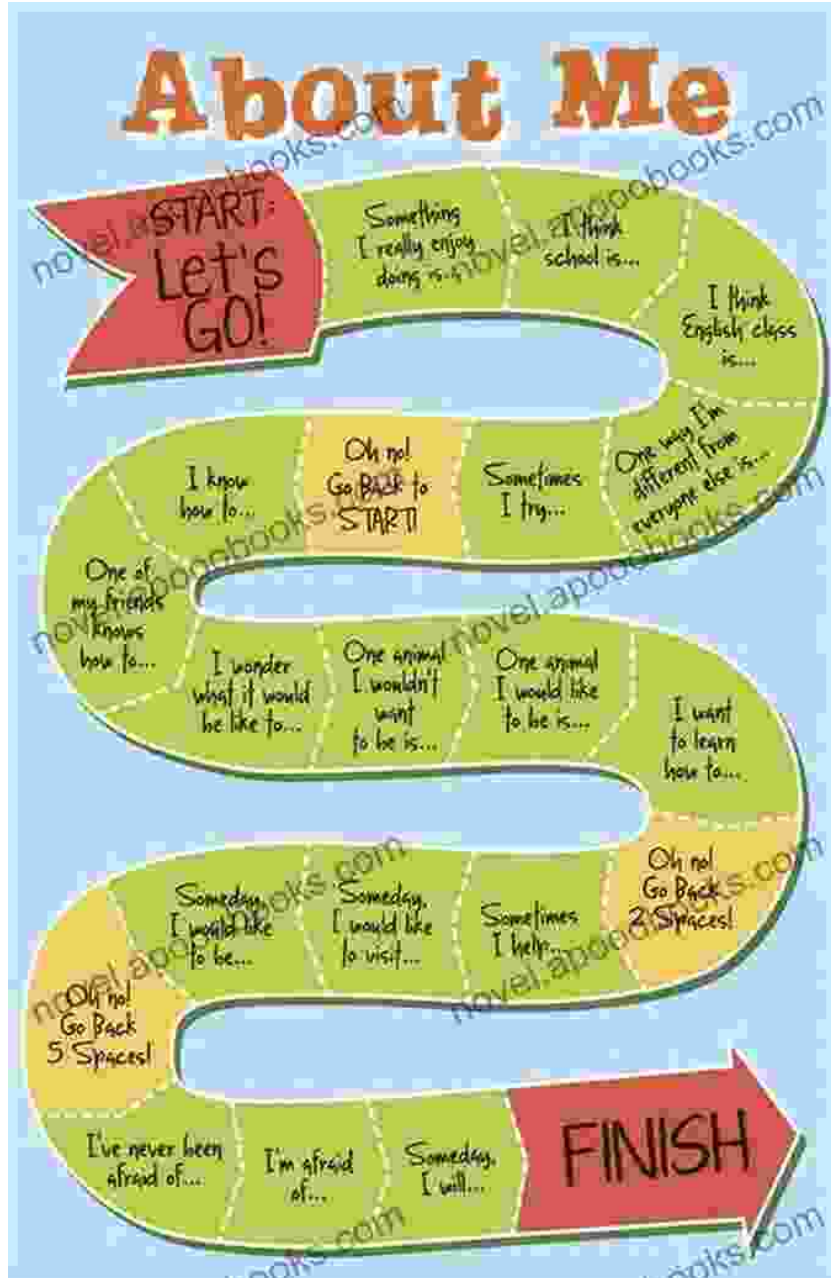 About Me
START:
Let's
GO!
Something
I really enjoy
doing is...
I think
school is...
I think
English class
is...
One way I'm
different from
everyone else is...
Sometimes
I try...
Oh no!
Go Back to
START!
I know
how to...
One of
my friends
knows
how to...
I wonder
what it would
be like to...
One animal
I wouldn't
want
to be is...
One animal
I would like
to be is...
I want
to learn
how to...
Oh no!
Go Back
2 Spaces!
Sometimes
I help...
Someday,
I would like
to visit...
Someday,
I would like
to be...
Oh no!
Go Back
5 Spaces!
I've never been
afraid of...
I'm afraid
of...
Someday,
I will...
FINISH
novel.apooobooks.com
novel.apooobooks.com
novel.apooobooks.com
novel.apooobooks.com
novel.apooobooks.com
novel.apooobooks.com
ooks.com
ooks.com